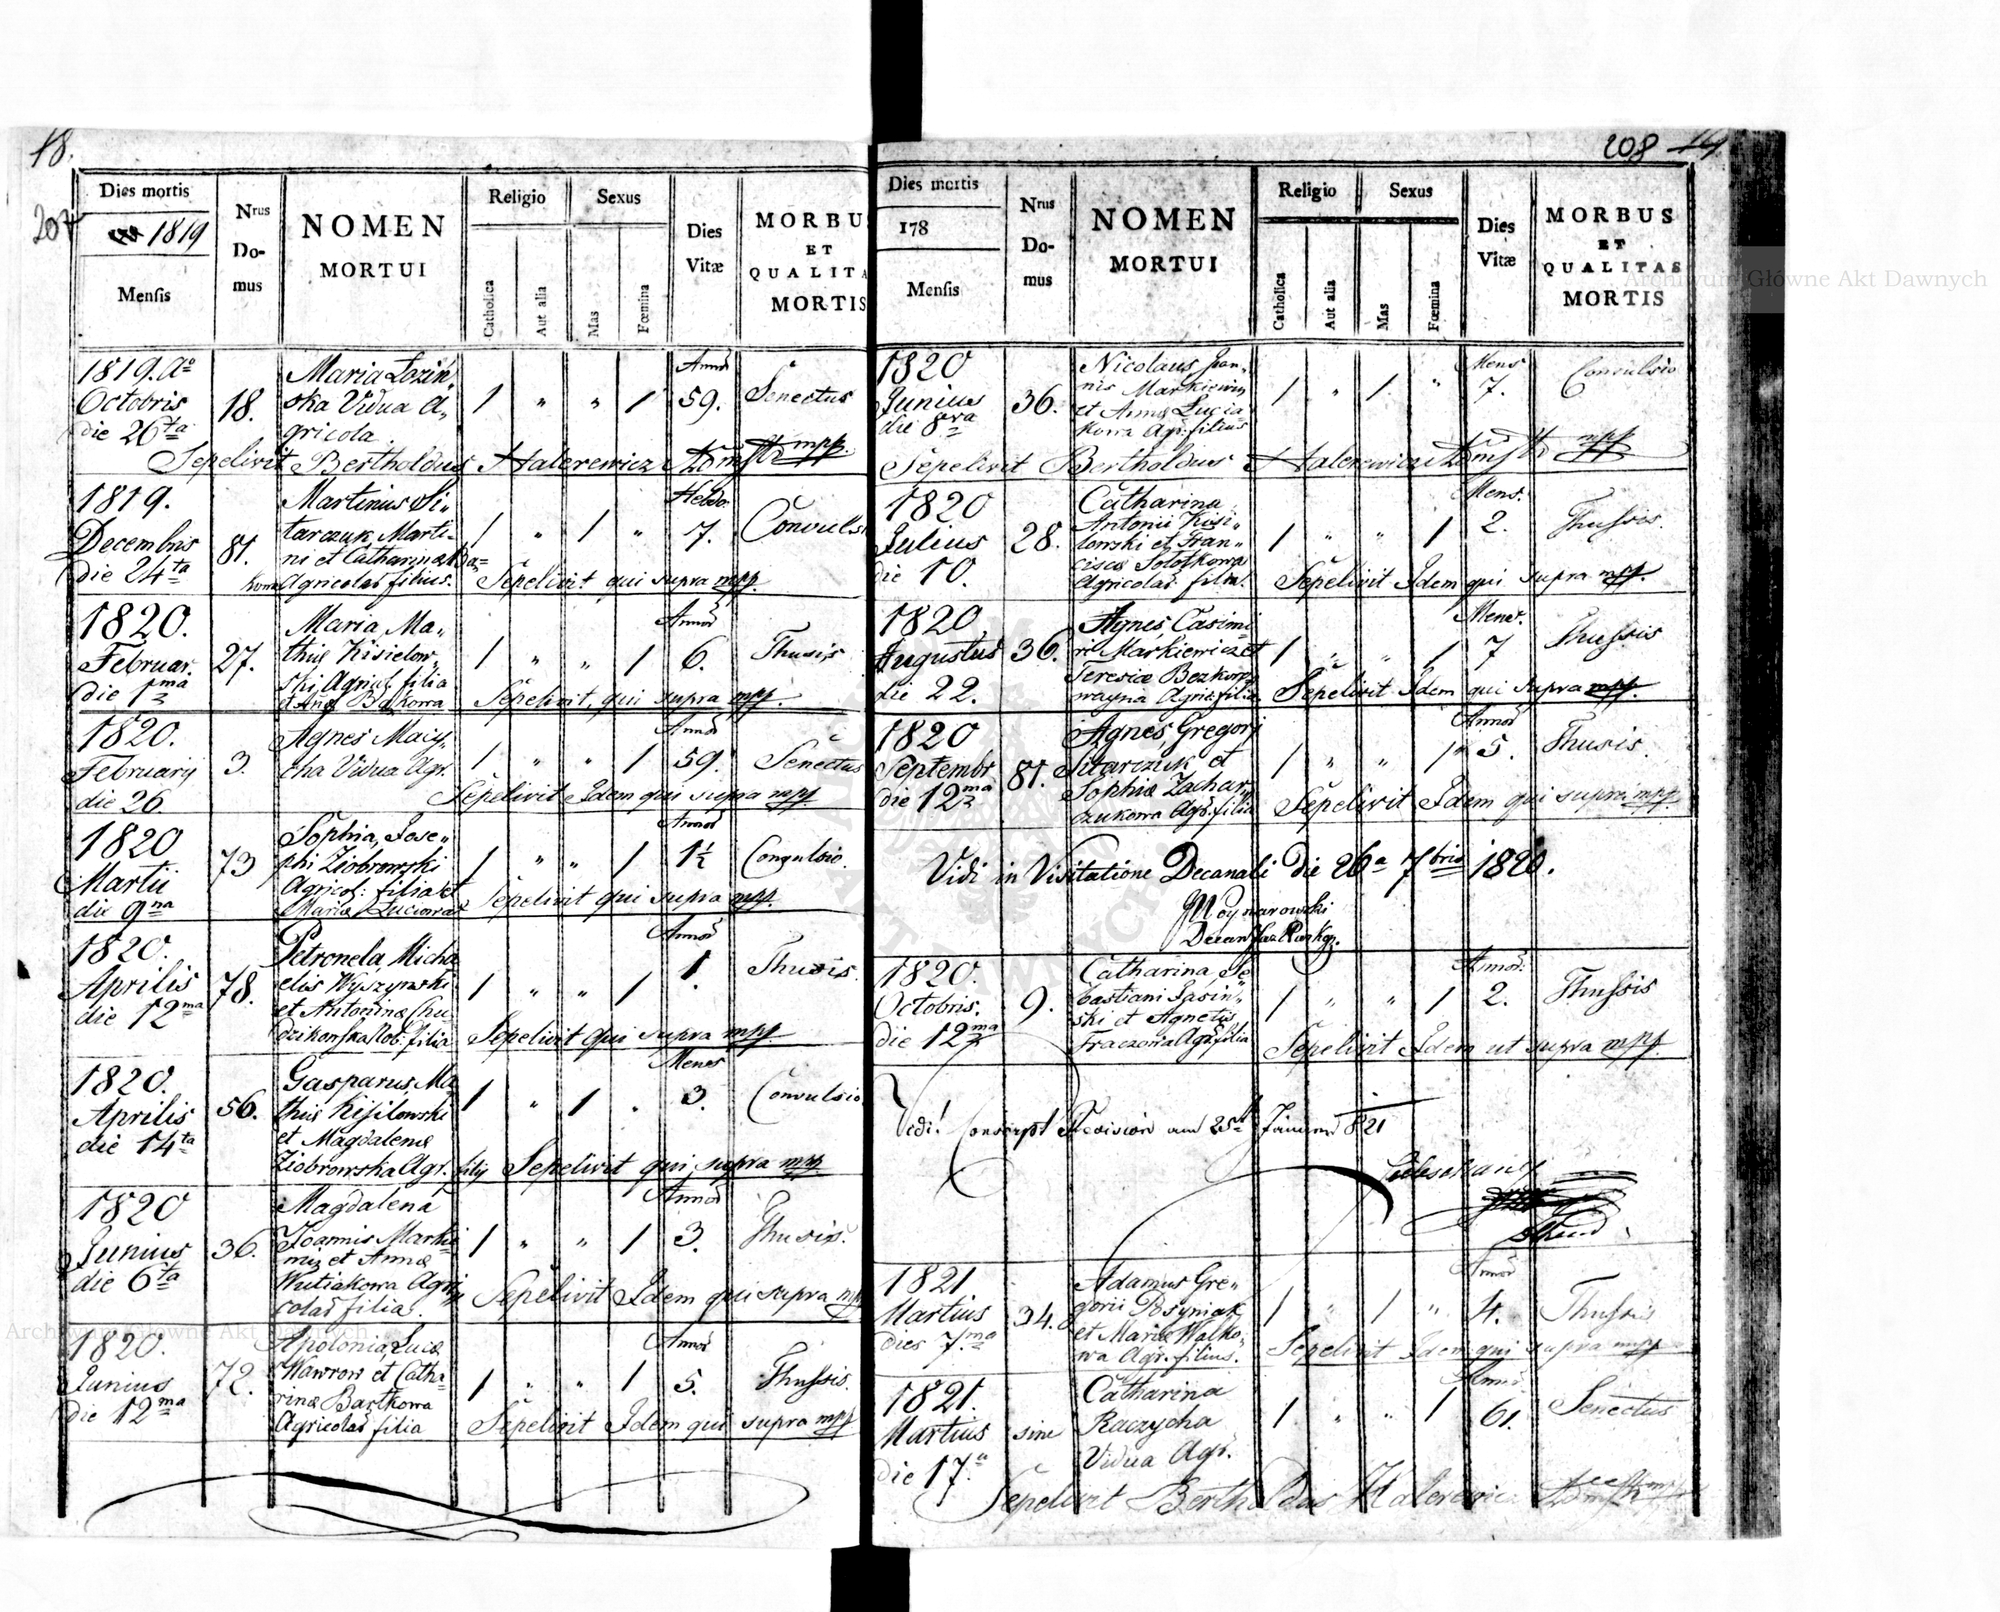 18.
207
Dies mortis
1819
Mensis
Nrus
Do-
mus
NOMEN
MORTUI
Religio
Catholica
Aut alia
Sexus
Mas
Fœmina
Dies
Vitæ
MORBU
ET
QUALITA
MORTIS
1819. Ao
Octobris
die 26ta
18.
Maria Lozin„
ska Vidua A„
gricola.
1 „ „ 1
Annor
59.
Senectus
Sepelivit Bertholdus Halerewicz Admstr mpp.
1819.
Decembris
die 24ta
81.
Martinus Si„
tarczuk, Marti„
ni et Catharinæ Ba=
kowa Agricolar filius.
1 „ 1 „
Hebdo
7.
Convuls
Sepelivit qui supra mpp.
1820.
Februar.
die 1ma
27.
Maria Ma„
thiæ Kisielow„
ski Agricol. filia
et Anæ Bakowa
1 „ „ 1
Annor
6.
Thusis
Sepelivit, qui supra mpp.
1820.
February
die 26.
3.
Agnes Macy„
cha Vidua Agr.
1 „ „ 1
Annor
59.
Senectus
Sepelivit Idem qui supra mpp
1820
Martii
die 9na
73
Sophia, Jose„
phi Ziobrowski
Agricol: filia et
Mariæ
1 „ „ 1
Annor
1½
Convulsio.
Sepelivit qui supra mpp.
1820.
Aprilis
die 12ma
78.
Petronela, Micha
elis Wyszynski
et Antoninæ Chu
dzikowska Nob. filia
1 „ „ 1
Annor
1.
Thusis.
Sepelivit qui supra mpp
1820.
Aprilis
die 14ta
56.
Gasparus Ma
thiæ Kisilowski
et Magdalenæ
Ziobrowska Agr. filij
1 „ 1 „
Menes
3.
Convulsio
Sepelivit qui supra mpp
1820
Junius
die 6ta
36.
Magdalena
Joannis Marki
wiz et Annæ
Agri
colar filia.
1 „ „ 1
Annor
3.
Thusis.
Sepelivit Idem qui supra mpp
1820.
Junius
die 12ma
72.
Apolonia, Lucæ
Wawrow et Catha„
rinæ Bartkowa
Agricolar filia
1 „ „ 1
Annor
5.
Thussis.
Sepelivit Idem qui supra mpp
208 19
Dies mortis
178
Mensis
Nrus
Do-
mus
NOMEN
MORTUI
Religio
Catholica
Aut alia
Sexus
Mas
Fœmina
Dies
Vitæ
MORBUS
ET
QUALITAS
MORTIS
1820
Junius
die 8va
36.
Nicolaus Joan„
nis Markiewicz
et Annæ Lucia„
kowa Agr. filius
1 „ 1 „
Mens
7.
Convulsio
Sepelivit Bertholdus Halerewicz Admstr mpp
1820
Julius
die 10.
28.
Catharina
Antonii Kisi„
lowski et Fran„
ciscæ Solotkowa
Agricolar. filia.
1 „ „ 1
Mens.
2.
Thussis.
Sepelivit Idem qui supra mpp.
1820
Augustus
die 22.
36.
Agnes, Casimi
ri Markiewicz et
Teresiæ Bezkoro
wayna Agr. filia
1 „ „ 1
Mens.
7
Thussis
Sepelivit Idem qui supra mpp.
1820
Septembr
die 12ma
81.
Agnes, Gregorj
Sitarczuk et
Sophiæ Zachar„
czukowa Agr. filia
1 „ „ 1
Annor
5.
Thusis.
Sepelivit Idem qui supra mpp
Vidi in Visitatione Decanali die 26a 7bris 1820.
1820.
Octobris.
die 12ma
9.
Catharina, Se
bastiani Jasin„
ski et Agnetis
Fraczowa Agr. filia
1 „ „ 1
Annor.
2.
Thussis
Sepelivit Idem ut supra mpp.
Vidi! Conscript Revision am 25t Januar 821
1821
Martius
dies 7.ma
34.
Adamus Gre„
gorii Posyniak
et Mariæ Walko„
wa Agr. filius.
1 „ 1 „
Annor
4.
Thussis
Sepelivit Idem qui supra mpp
1821.
Martius
die 17.a
sine
Catharina
Raczycha
Vidua Agr.
1 „ „ 1
Annor
61.
Senectus
Sepelivit Bertholdus Halerewicz
Archiwum Główne Akt Dawnych
Archiwum Główne Akt Dawnych